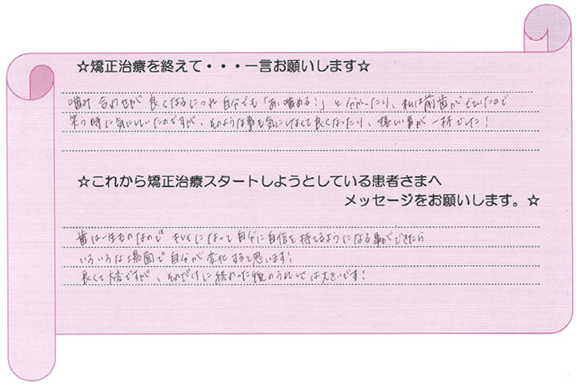 ☆矯正治療を終えて・・・一言お願いします☆
噛み合わせが良くなるにつれ自分でも「あ、噛める!」と分かったり、私は前歯が出ていたので
笑う時に気にしていたのですが、そのような事も気にしなくて良くなったり、嬉しい事が一杯でした!
☆これから矯正治療スタートしようとしている患者さまへ
メッセージをお願いします。☆
歯は一生ものなので キレイになって自分に自信を持てるようになる事ができたら
いろいろな場面で自分が変化すると思います!
長くて大変ですが、それだけに終わった後のうれしさは大きいです!